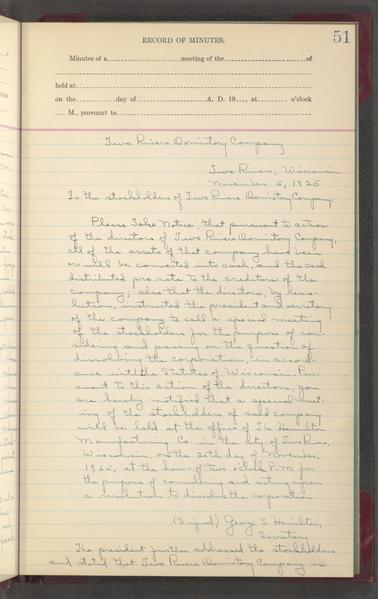 51
RECORD OF MINUTES.
Minutes of a meeting of the of
held at
on the day of A. D. 19 , at o'clock
M., pursuant to
Two Rivers Dormitory Company
Two Rivers, Wisconsin
November 5, 1925.
To the stockholders of Two Rivers Dormitory Company:
Please Take Notice, that pursuant to action
of the directors of Two Rivers Dormitory Company,
all of the assets of that company have been
or will be converted into cash, and the cash
distributed pro rate to the creditors of the
company; also that the directors, by reso-
lution, instructed the president and secretary
of the company to call a special meeting
of the stockholders for the purpose of con-
sidering and passing on the question of
dissolving the corporation, in accord-
ance with the Statutes of Wisconsin. Pur-
suant to this action of the directors, you
are hereby notified that a special meet-
ing of the stockholders of said company
will be held at the office of The Hamilton
Manufacturing Co. in the city of Two Rivers,
Wisconsin, on the day of November,
1925, at the hour of two o'clock P.M. for
the purpose of considering and acting upon
a resolution to dissolve the corporation.
(Signed) George S. Hamilton,
Secretary
The president further addressed the stockholders
and stated that Two Rivers Dormitory Company is